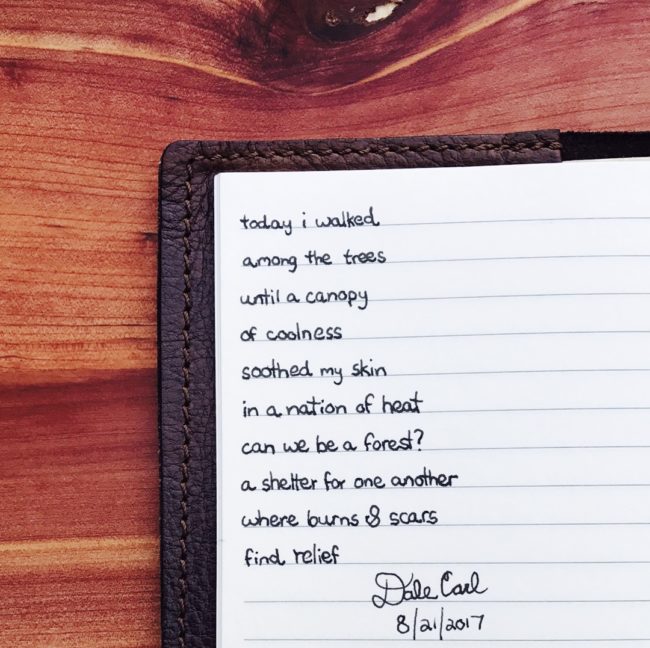 today i walked
among the trees
until a canopy
of coolness
soothed my skin
in a nation of heat
can we be a forest?
a shelter for one another
where burns & scars
find relief
Dale Carl
8/21/2017